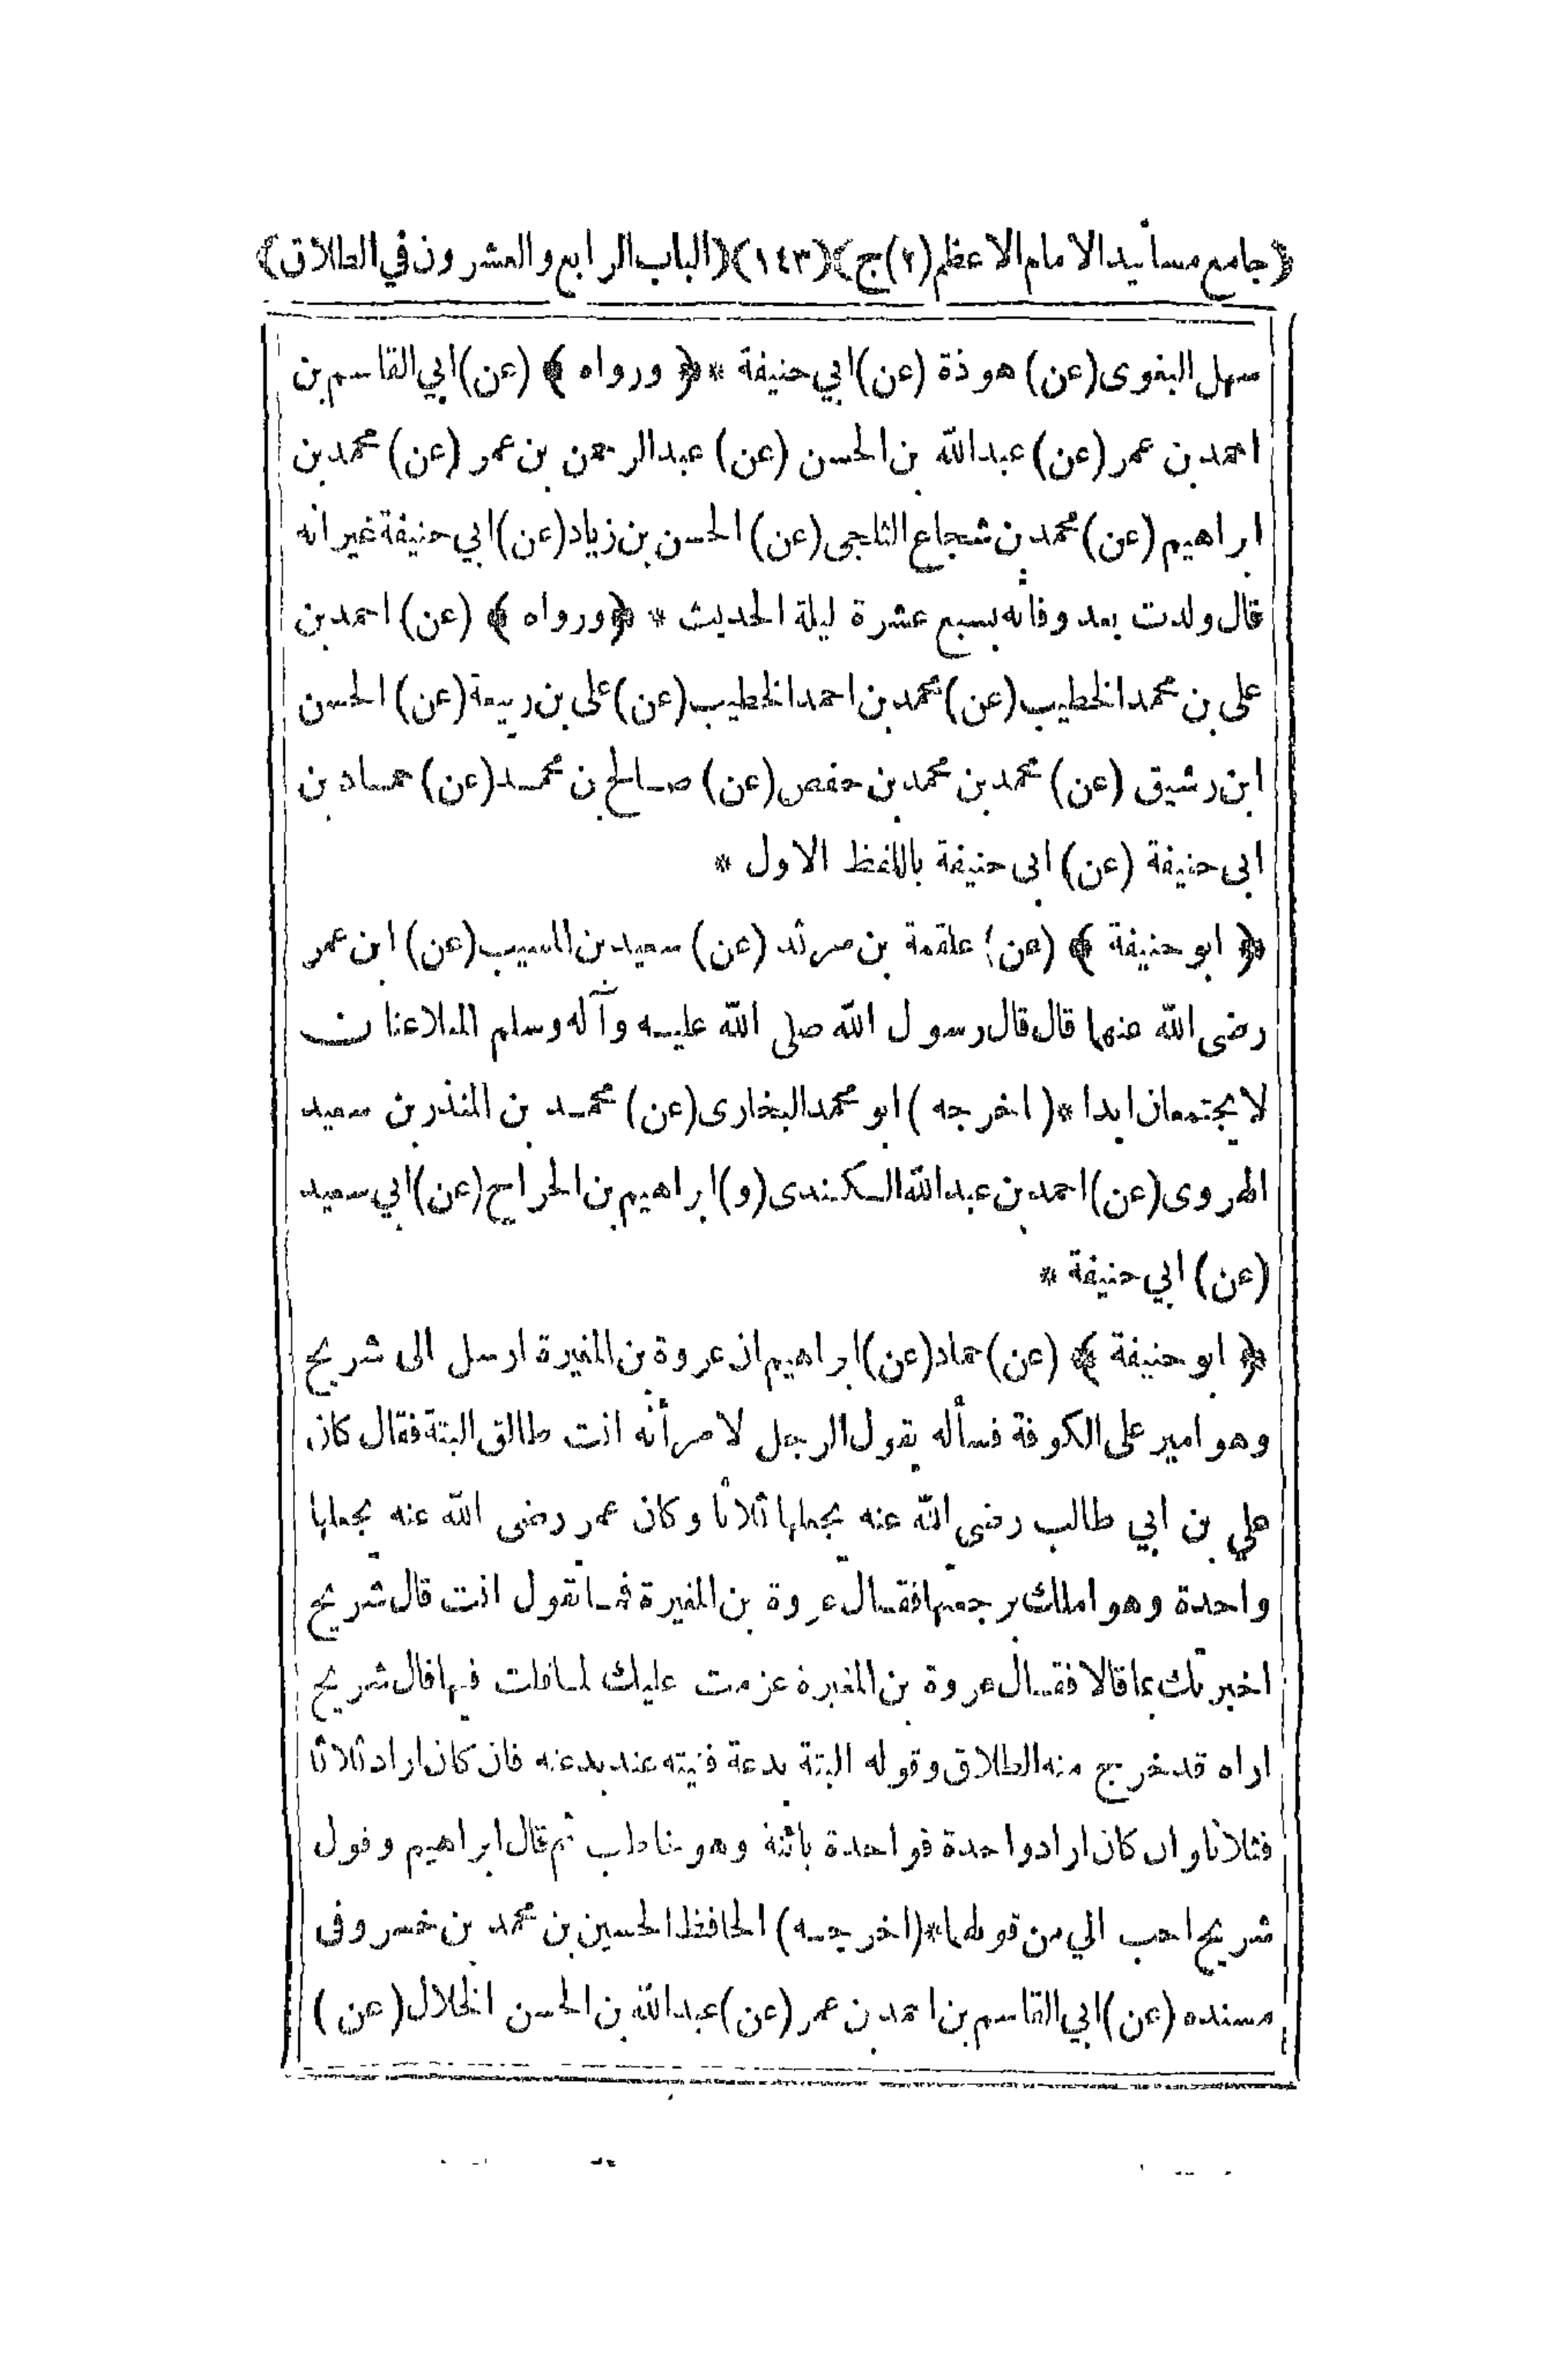 ﴿جامع مسانيد الامام الاعظم (٢) ج﴾ (١٤٣) ﴿الباب الرابع والعشرون في الطلاق﴾
سهل البغوى (عن) هوذة (عن) ابي حنيفة * ﴿ ورواه ﴾ (عن) ابي القاسم بن
احمد بن عمر (عن) عبد الله بن الحسن (عن) عبد الرحمن بن عمر (عن) محمد بن
ابراهيم (عن) محمد بن شجاع الثلجى (عن) الحسن بن زياد (عن) ابي حنيفة غير انه
قال ولدت بعد وفاته بسبع عشرة ليلة الحديث * ﴿ ورواه ﴾ (عن) احمد بن
على بن محمد الخطيب (عن) محمد بن احمد الخطيب (عن) على بن ربيعة (عن) الحسن
ابن رشيق (عن) محمد بن محمد بن حفص (عن) صالح بن محمد (عن) حماد بن
ابى حنيفة (عن) ابى حنيفة باللفظ الاول *
﴿ ابو حنيفة ﴾ (عن) علقمة بن مرثد (عن) سعيد بن المسيب (عن) ابن عمر
رضى الله عنهما قال قال رسول الله صلى الله عليه وآله وسلم المتلاعنان
لا يجتمعان ابدا * (اخرجه) ابو محمد البخارى (عن) محمد بن المنذر بن سعيد
الهروى (عن) احمد بن عبد الله الكندى (و) ابراهيم بن الجراح (عن) ابي سعيد
(عن) ابي حنيفة *
﴿ ابو حنيفة ﴾ (عن) حماد (عن) ابراهيم ان عروة بن المغيرة ارسل الى شريح
وهو امير على الكوفة فسأله بقول الرجل لامرأته انت طالق البتة فقال كان
علي بن ابي طالب رضى الله عنه يجعلها ثلاثا وكان عمر رضى الله عنه يجعلها
واحدة وهو املك برجعتها فقال عروة بن المغيرة فما تقول انت قال شريح
اخبرتك بما قالا فقال عروة بن المغيرة عزمت عليك لما قلت فيها قال شريح
اراه قد خرج منه الطلاق وقوله البتة بدعة فنيته عند بدعته فان كان اراد ثلاثا
فثلاثا وان كان اراد واحدة فواحدة بائنة وهو خاطب ثم قال ابراهيم وقول
شريح احب الي من قولهما * (اخرجه) الحافظ الحسين بن محمد بن خسرو فى
مسنده (عن) ابي القاسم بن احمد بن عمر (عن) عبد الله بن الحسن الخلال (عن)